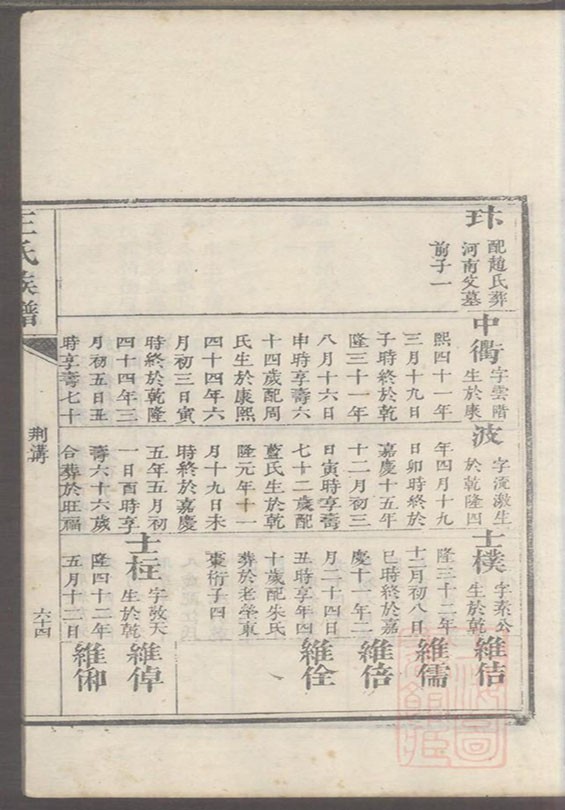 配趙氏葬
河南父墓
前子一
中衢
字雲階
生於康
熙四十一年
三月十九日
子時終於乾
隆三十一年
八月十六日
申時享壽六
十四歲配周
氏生於康熙
四十四年六
月初三日寅
時終於乾隆
四十四年三
月初五日丑
時享壽七十
波
字 激生
於乾隆四
年四月十九
日卯時終於
嘉慶十五年
十二月初三
日寅時享壽
七十二歲配
藍氏生於乾
隆元年十一
月十九日未
時終於嘉慶
五年五月初
一日酉時享
壽六十六歲
合葬於旺福
士樸
字素公
生於乾
隆三十二年
十二月初八日
巳時終於嘉
慶十一年二
月二十四日
丑時享年四
十歲配朱氏
葬於老塋東
棗行子四
士
字敬天
生於乾
隆四十二年
五月十二日
維佶
維儒
維倍
維佺
維倬
維俰
王氏族譜
荆溝
六十四